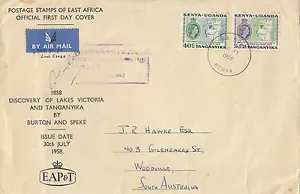 POSTAGE STAMPS OF EAST AFRICA
OFFICIAL FIRST DAY COVER
BY AIR MAIL
2nd Class
KENYA-UGANDA
40c
TANGANYIKA
KENYA-UGANDA
TANGANYIKA
1958
1858
DISCOVERY OF LAKES VICTORIA
AND TANGANYIKA
BY
BURTON AND SPEKE
ISSUE DATE
30th JULY
1958.
EAP&T
J R HAWKE ESQ
NO 3 GLENGARRY ST.
WOODVILLE,
SOUTH AUSTRALIA